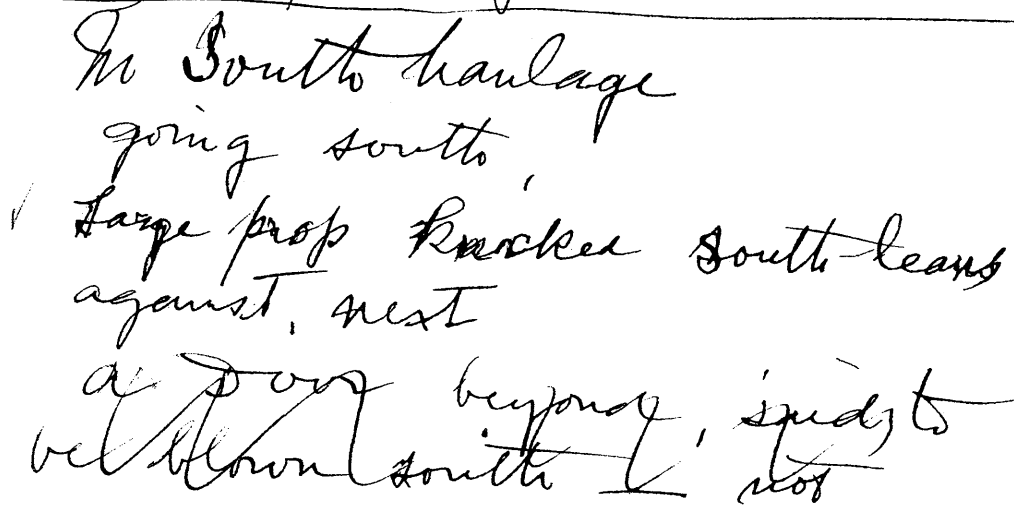 In South haulage
going south,
Large prop knocked south leans
against, next
a Door beyond, said, to
be blown south — not